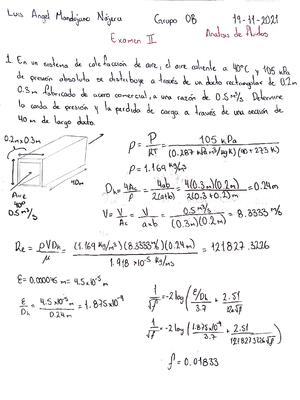 Luis Angel Mondujano Nájera Grupo 08 19-11-2021
Examen II Analisis de Fluidos
1. En un sistema de calefacción de aire, el aire caliente a 40°C y 105 kPa
de presión absoluta se distribuye a través de un ducto rectangular de 0.2m
0.3m fabricado de acero comercial, a una razón de 0.5 m³/s. Determine
la caída de presión y la perdida de carga a través de una sección de
40 m de largo ducto.
0.2m x 0.3m
40m
Aire
40°
0.5 m³/s
ρ = P/RT = 105 kPa / (0.287 kPa m³/kg K)(40+273 K)
ρ = 1.169 kg/m³
Dh = 4Ac/p = 4ab/2(a+b) = 4(0.3m)(0.2m)/2(0.3+0.2)m = 0.24m
V = V/Ac = V/a×b = 0.5 m³/s / (0.3m)(0.2m) = 8.3333 m/s
Re = ρVDh/μ = (1.169 kg/m³)(8.3333 m/s)(0.24m) / 1.918 ×10⁻⁵ kg/ms = 121827.3226
ε = 0.000045 m = 4.5x10⁻⁵ m
ε/Dh = 4.5x10⁻⁵ m / 0.24m = 1.875x10⁻⁴
1/√f = -2 log (ε/Dh / 3.7 + 2.51 / Re√f)
1/√f = -2 log (1.875x10⁻⁴ / 3.7 + 2.51 / 121827.3226√f)
f = 0.01833